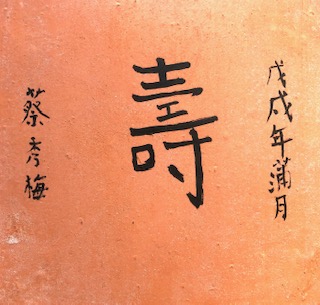 戊戌年蒲月
壽
蔡秀梅